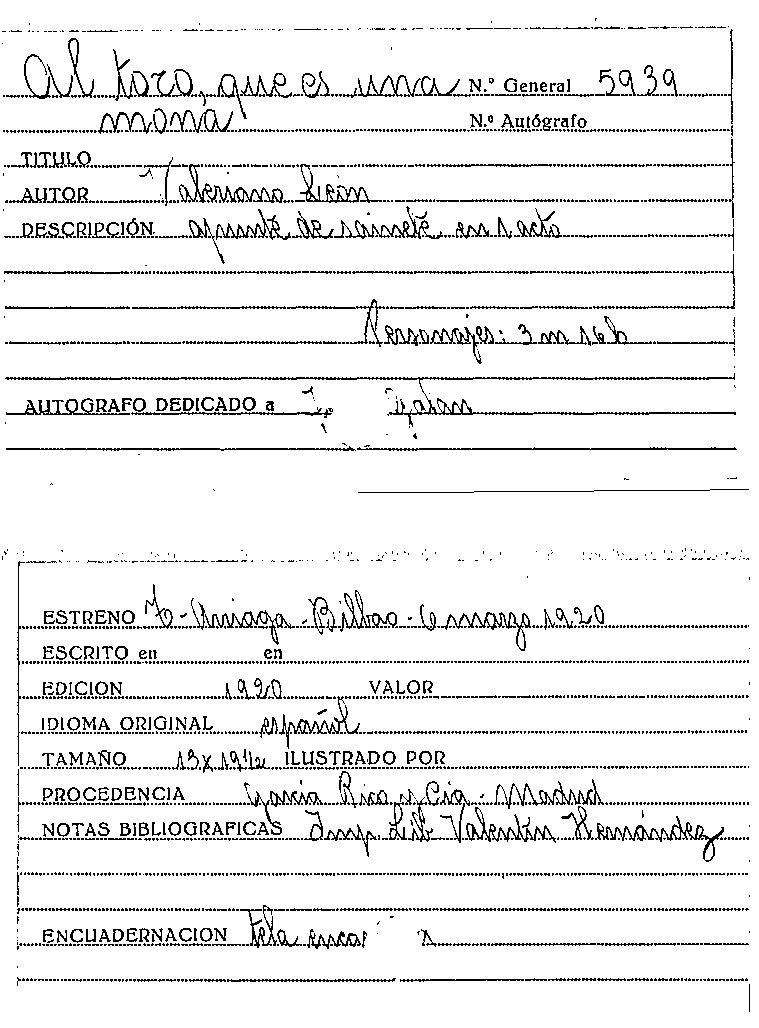 Al toro, que es una N.º General 5939
mona N.º Autógrafo
TITULO
AUTOR Valeriano León
DESCRIPCIÓN apunte de sainete en 1 acto
Personajes: 3 m 16 h
AUTOGRAFO DEDICADO a Galan
ESTRENO To-Arriaga-Bilbao-6 marzo 1920
ESCRITO en en
EDICION 1920 VALOR
IDIOMA ORIGINAL español
TAMAÑO 13x19½ ILUSTRADO POR
PROCEDENCIA Garcia Rico y Cia - Madrid
NOTAS BIBLIOGRAFICAS Imp. Lib Valentín Hernández
ENCUADERNACION tela